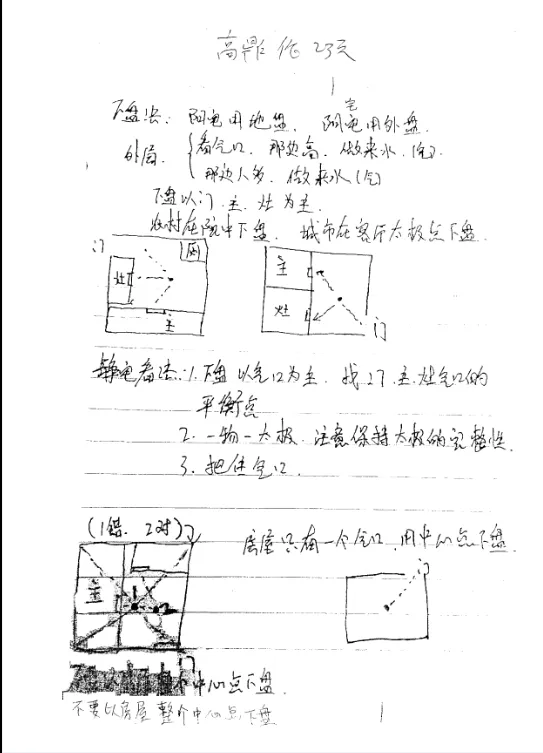 高鼎作23天
下盘法: 阴宅用地盘. 阳宅用外盘.
外局. {看气口. 那边高. 做来水.(气).
那边人多. 做来水(气)
下盘以门. 主. 灶为主.
农村在院中下盘. 城市在客厅太极点下盘.
门 厨
灶
主
主
灶
门
静宅看法: 1. 下盘以气口为主. 找门. 主. 灶气口的
平衡点
2. 一物一太极. 注意保持太极的完整性.
3. 把住气口.
(1错. 2对) 门
房屋只有一个气口. 用中心点下盘.
主
1 2
门
门
中心点下盘.
不要以房屋整个中心点下盘